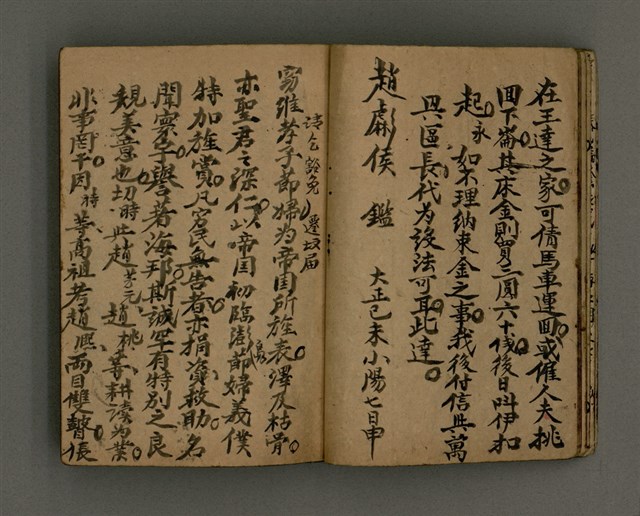 在王達之家。可倩馬車運回。或僱人夫挑
回下崙。其床金則買三圓六十錢。後日叫伊扣
起。永如不理納束金之事。我後付信與萬
興區長代為設法可耳。此達。
趙庿侯 鑑 大正己未小陽七日申
請乞豁免遷坟届
竊維孝子節婦為帝国所旌表。澤及枯骨。
亦聖君之深仁。以帝国初臨澎島節婦義僕
特加旌賞。凡窮民無告者。亦捐資救助。名
聞寰宇。譽著海邦。斯誠罕有特別之良
規美意也。切時此趙 元。趙桃等耕讀為業。
非事罔予。因時等高祖考趙 熙。兩目雙瞽。長